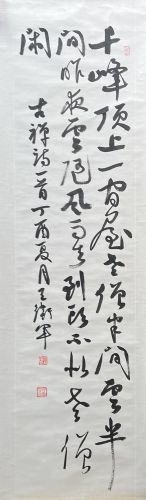 千峰顶上一间屋老僧半间云半
间昨夜云随风雨去到头不似老僧
闲
古禅诗一首丁酉夏月王卫军